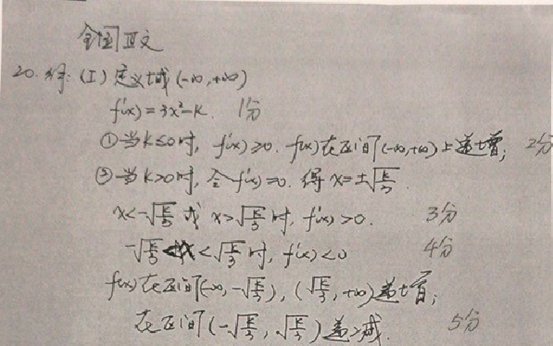 全国Ⅲ文
20. 解: (I) 定义域 (-∞, +∞)
f'(x) = 3x²-k. 1分
① 当 k≤0 时, f'(x)≥0. f(x) 在区间 (-∞,+∞) 上递增; 2分
② 当 k>0 时, 令 f'(x)=0. 得 x=±√(k/3).
x<-√(k/3) 或 x>√(k/3) 时, f'(x)>0. 3分
-√(k/3)<x<√(k/3) 时, f'(x)<0 4分
f(x) 在区间 (-∞, -√(k/3)), (√(k/3), +∞) 递增;
在区间 (-√(k/3), √(k/3)) 递减. 5分